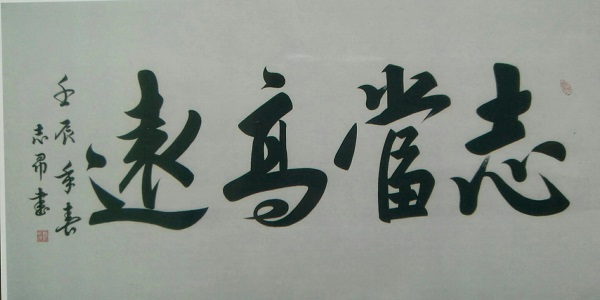 志當高遠
壬辰年春
志昂書